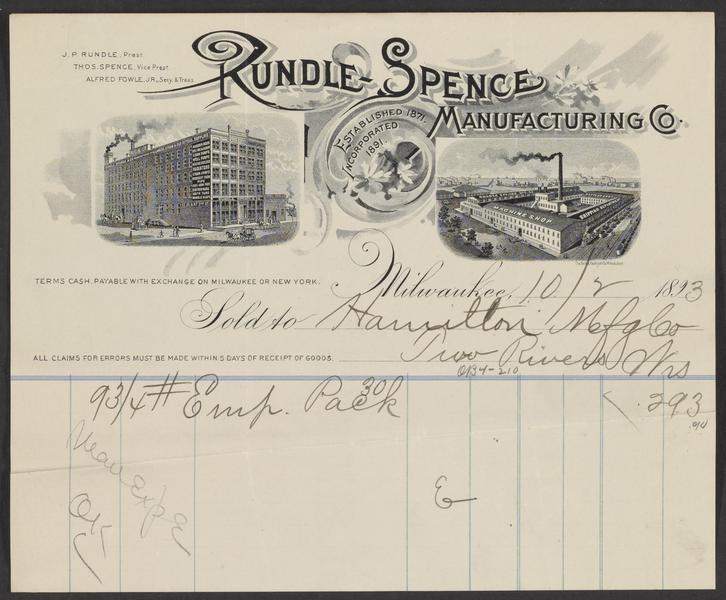 J. P. RUNDLE, Prest.
THOS. SPENCE, Vice Prest.
ALFRED FOWLE, JR., Secy. & Treas.
RUNDLE-SPENCE
MANUFACTURING CO.
ESTABLISHED 1871.
INCORPORATED
1891.
MACHINE SHOP
TERMS CASH, PAYABLE WITH EXCHANGE ON MILWAUKEE OR NEW YORK.
Milwaukee, 10/2 1893
Sold to Hamilton Mfg Co
ALL CLAIMS FOR ERRORS MUST BE MADE WITHIN 5 DAYS OF RECEIPT OF GOODS.
Two Rivers Wis
OB4-210
9 3/4 # Emp. Pack 30 2 93
OK